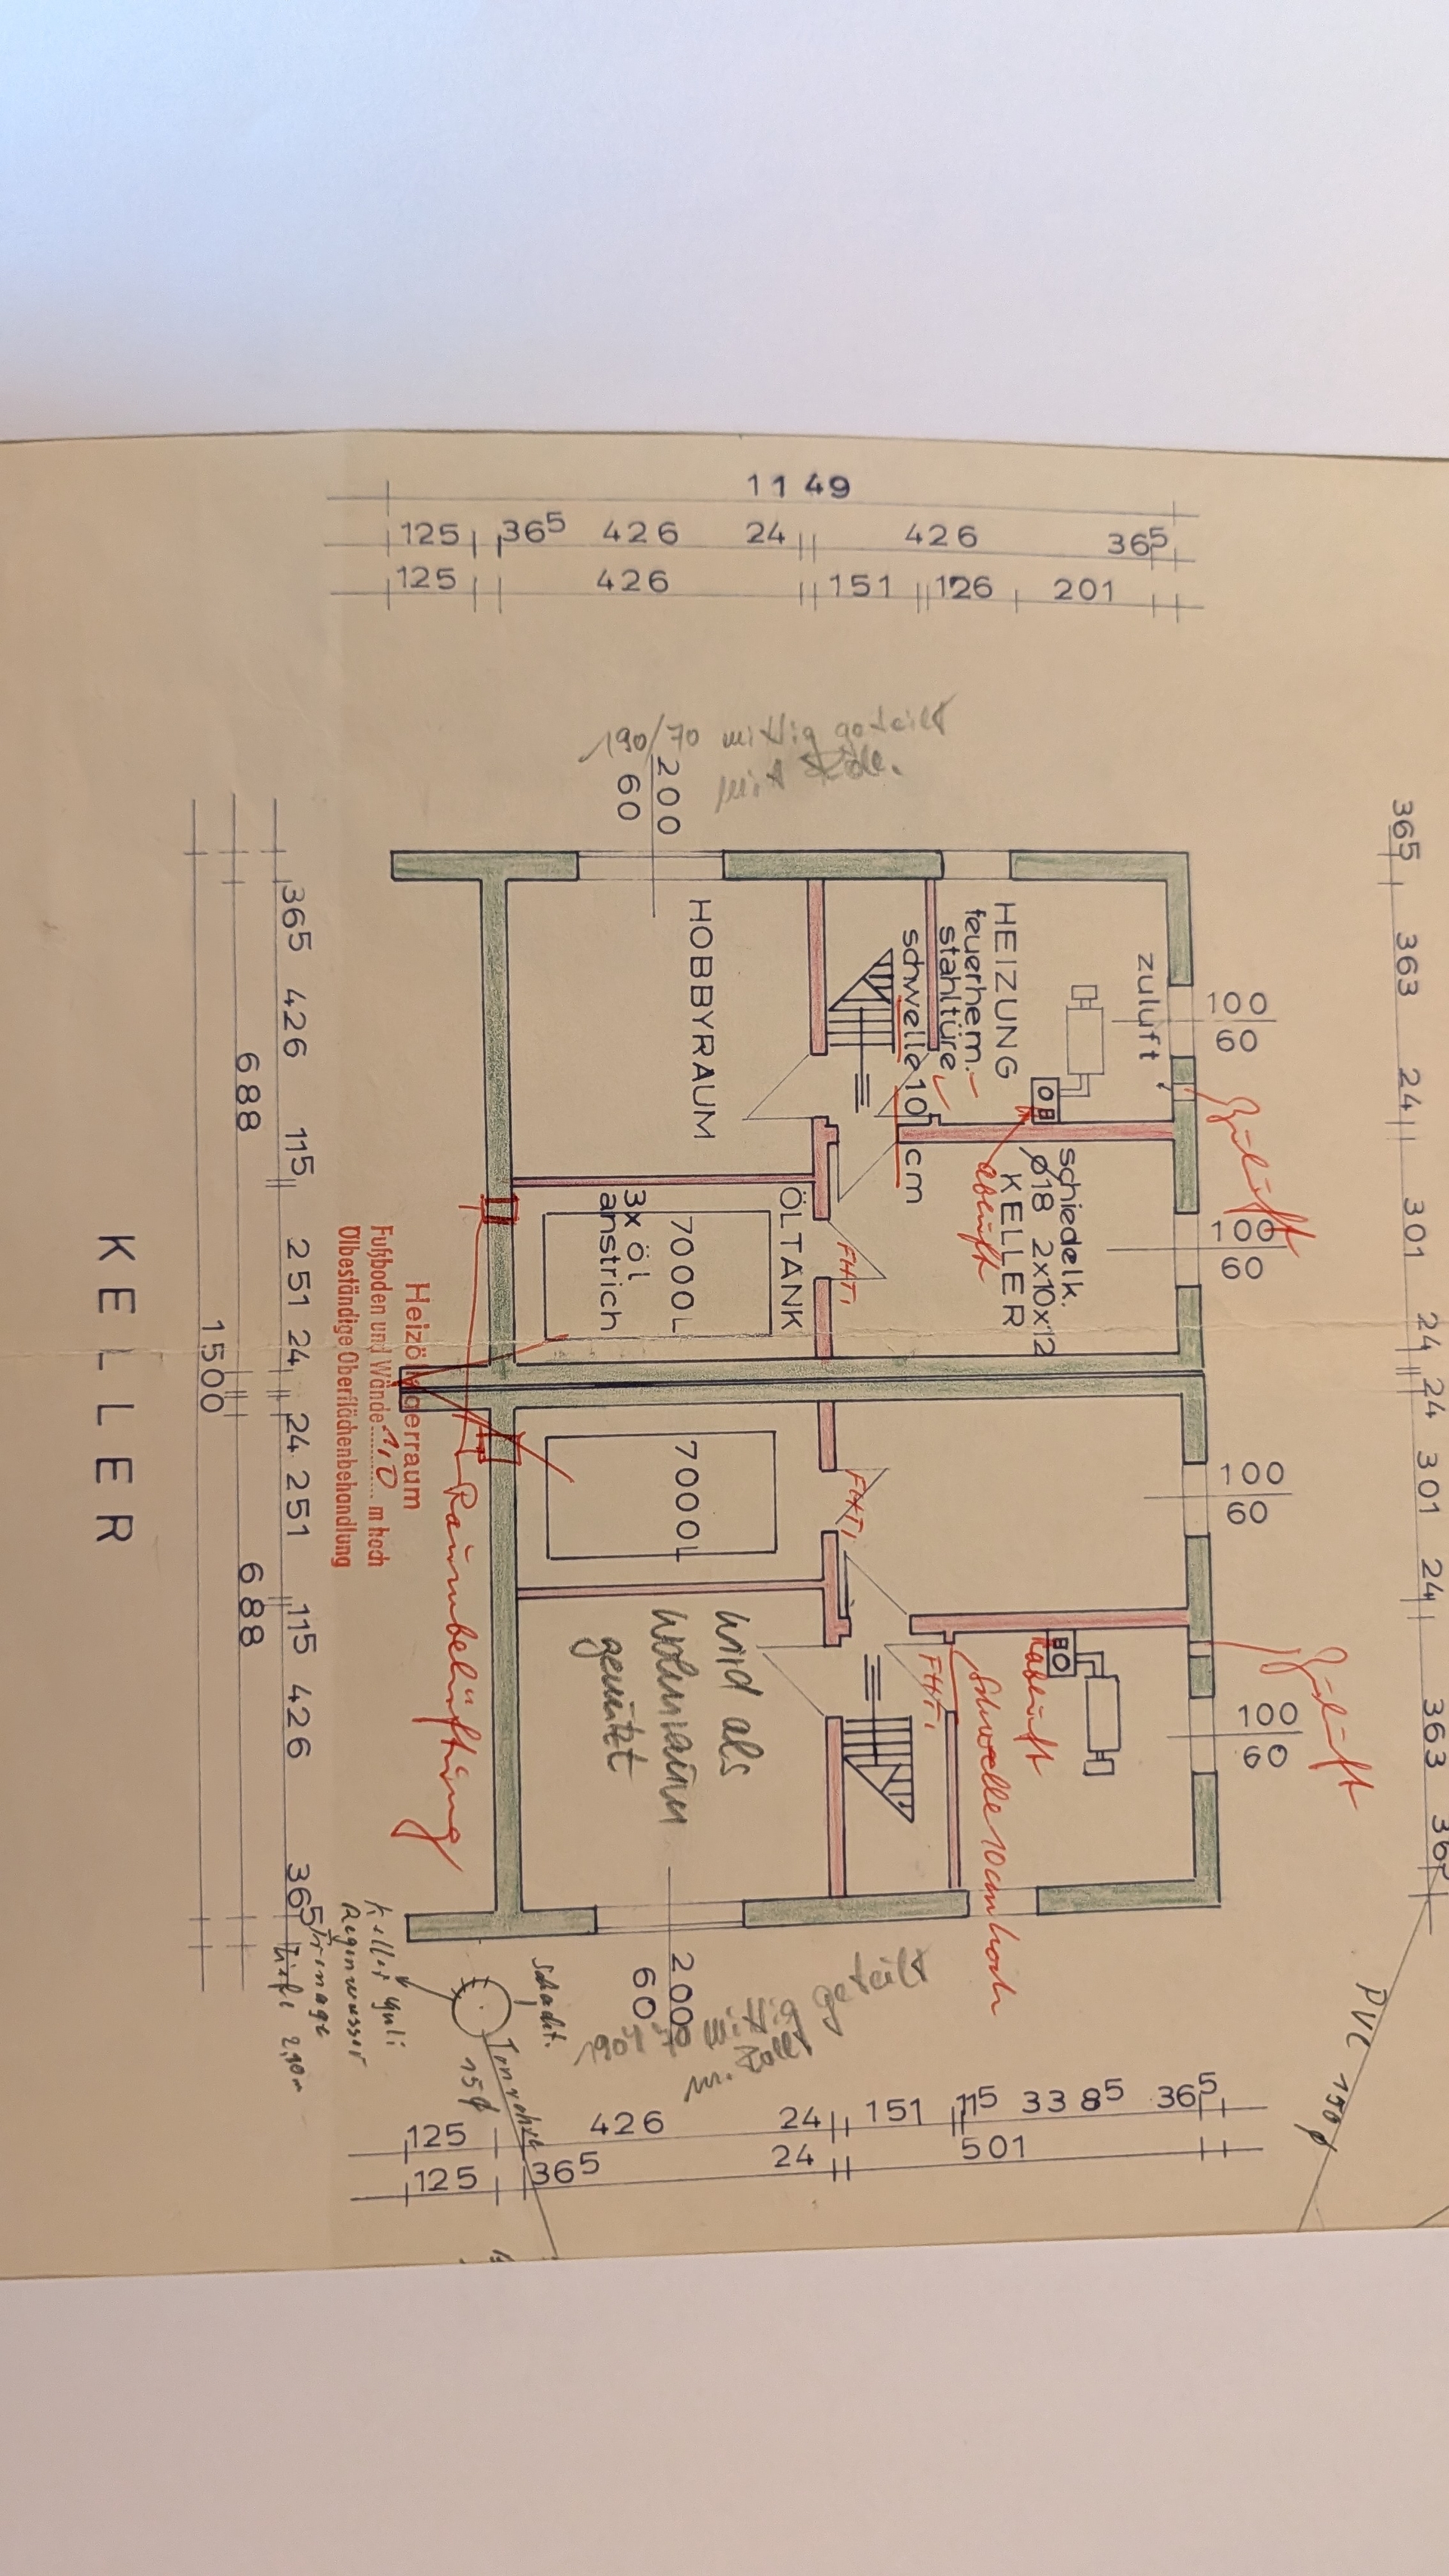 365 363 24 301 24 24 301 24 363
PVC 150
Zuluft
Zuluft
100
60
100
60
100
60
100
60
zuluft
HEIZUNG
feuerhem.
stahltüre
schwelle 10 cm
schiedelk.
ø18 2x10x12
KELLER
abluft
abluft
FHT,
FHT,
FHT,
Schwelle 10 cm hoch
HOBBYRAUM
ÖLTANK
7000 L
3x öl
anstrich
7000 L
wird als
Wohnraum
genützt
190/70 mittig geteilt
200
60
mittig geteilt
200
60
1149
125 365 426 24 426 365
125 426 151 126 201
426 24 151 115 3385 365
125 24 501
125 365
Schacht.
Tonrohre
15
Keller Guli
Regenwasser
Raumbelüftung
Heizöllagerraum
Fußboden und Wände 1,0 m hoch
Ölbeständige Oberflächenbehandlung
365 426 115 251 24 24 251 115 426 365
688 688
1500
KELLER